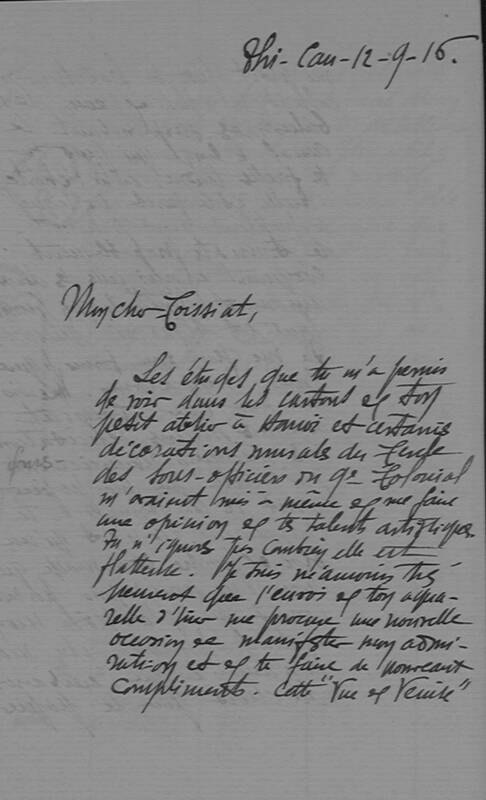 Thi-Cau-12-9-16.
Mon cher Toissiat,
Les études que tu m'a permis
de voir dans les cartons de ton
petit atelier à Hanoi et certaines
décorations murales du Cercle
des Sous-officiers du 9e Colonial
m'avaient mis à même de me faire
une opinion de tes talents artistiques.
Tu n'ignores pas combien elle est
flatteuse. Je suis néanmoins très
heureux que l'envoi de ton aqua-
relle d'hier me procure une nouvelle
occasion de manifester mon admi-
ration et de te faire de nouveaux
compliments. Cette "Vue de Venise"